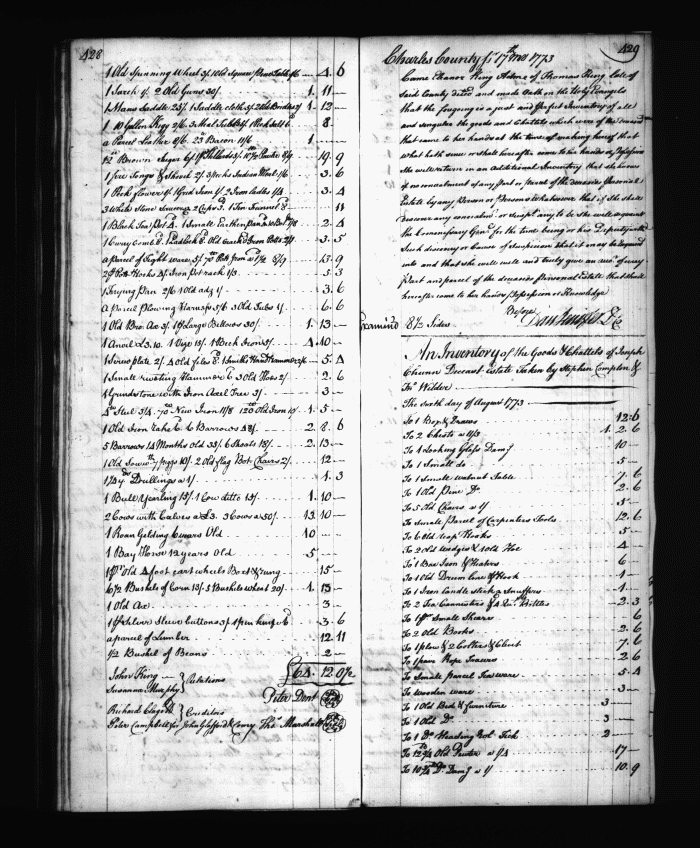 428
1 Old Spinning Wheel 3/. 1 Old Square Pine Table 1/6 4. 6
1 2 Old Guns 30/. 1. 11
1 Mans Saddle 23/. 1 Saddle cloth 5/. 2 Old Bridles 4/ 1. 12
1 10 Gallon Kegg 2/6 3 8
a Parcel Leather 23 Bacon 11/6 1
12 Brown Sugar 6/. 19. 9
1 Fire Tongs & Shovel 2/. 3 Pecks Indian Meal 1/6 3. 6
1 Peck flower 3 . 4
3 White Stone 11
1 Black Tea Pot 4. 1 Small Earthen Pan 2 . 4
1 Curry Comb 8. 1 Padlock 8. Old Cracked Iron Pott 2/1 3. 5
a parcel of Tight ware, 5/. 13. 9
2 Pot Hooks 4/. Iron Pot rack 1/3 5 3
1 Frying Pan 2/6 1 Old adz 1/ 3. 6
a Parcel Plowing Harness 3/6 3 Old Tubs 1/ 6. 6
1 Old Bro. Ax 3/. 1 pr Large Bellows 30/. 1. 13
1 Anvil £3. 10. 1 Vise 15/. 1 Beck Iron 5/. 4. 10
1 Screw plate 2/. 4 old files 8. 1 Smiths Hand Hammer 5. 4
1 Small riviting Hammer 6. 3 Old Hoes 2/ 2. 6
1 Grindstone with Iron Axel Tree 3/ 3
Steel 3/4. 70 New Iron 11/8 120 Old Iron 1. 5
1 Old Iron rake 6. 6 Barrows 48/. 2. 8. 6
5 Barrows 14 Months Old 35/. 6 Shoats 18/. 2. 13
1 Old Sow with 7 piggs 10/. 2 Old flag Bot. Chairs 2/. 12
a 1/ 1. 3
1 Bull Yearling 15/. 1 Cow ditto 15/. 1. 10
2 Cows with Calves a £3. 3 Cows a 50/. 13. 10
1 Roan Gelding 6 years Old 10
1 Bay Horse 12 years Old 5
1 pr Old 4 foot cart wheels Box & rung 15
6 1/2 Bushels of Corn 13/. 5 Bushels Wheat 20/. 1. 13
1 Old Ax 3
1 pr Silver Sleve Buttons 3/. 3 6
a parcel of Lumber 12 11
1/2 Bushel of Beans 2
£64. 12. 0 1/2
John King
Susanna Murphy } Relations
Peter Dent
Richard
Peter Campbell for John Glassford & Compy } Creditors
Tho. Marshall
429
Charles County Ss. 17th Nov 1773
Came Eleanor King Admx of Thomas King late of
Said County Decd and made Oath on the Holy Evangels
that the foregoing is a just and perfect Inventory of all
and singular the goods and Chattels which were of the Deceased
that came to her hands at the time of making hereof that
what hath since or shall hereafter come to her hands or Possession
She will return in an additional Inventory that she knows
of no concealment of any part or parcel of the deceaseds personal
Estate by any Person or Persons Whatsoever that if she shall
discover any concealment or suspect any to be she will acquaint
the Commissary Genl for the time being or his Deputy with
Such discovery or Causes of Suspicion that it may be Enquired
into and that she will well and truly give an acct of every
Part and parcel of the deceaseds Personal Estate that shall
hereafter come to her hands Possession or Knowledge
Before
Examined 8 1/2 Sides Dan Jenifer
An Inventory of the Goods & Chattels of Joseph
Chunn Deceast Estate Taken by Stephen Compton &
Jno Wilder
The Sixth day of August 1773
To 1 Box & Drawes 12. 6
To 2 Chests a 11/3 1. 2. 6
To 1 Looking Glass Damg 10
To 1 Small do 5
To 1 Small walnut Table 7. 6
To 1 Old Pine Do 2. 6
To 5 Old Chares a 1/ 5
To Small Parcel of Carpenters Tools 12. 6
To 6 Old reap Hooks 5
To 2 old Wedges & 1 old Hoe 4
To 1 Box Iron & Heaters 6
To 1 Old Drum line & Hook 1
To 1 Iron Candle stick & Snuffers 1
To 2 Tea Cannisters & 4 Bottles 2. 3
To 1 pr Small Shears 6
To 2 Old Books 2. 6
To 1 plow & 2 Colters & Clevit 7. 6
To 1 pair Rope Traces 2 6
To Small Parcel Tea ware 5. 4
To wooden ware 3
To 1 Old Bed & furniture 3
To 1 Old Do 3
To 1 Do Heading Bot. Tick 2
To Old Pewter a 17
To Do Damg a 1/ 10. 9